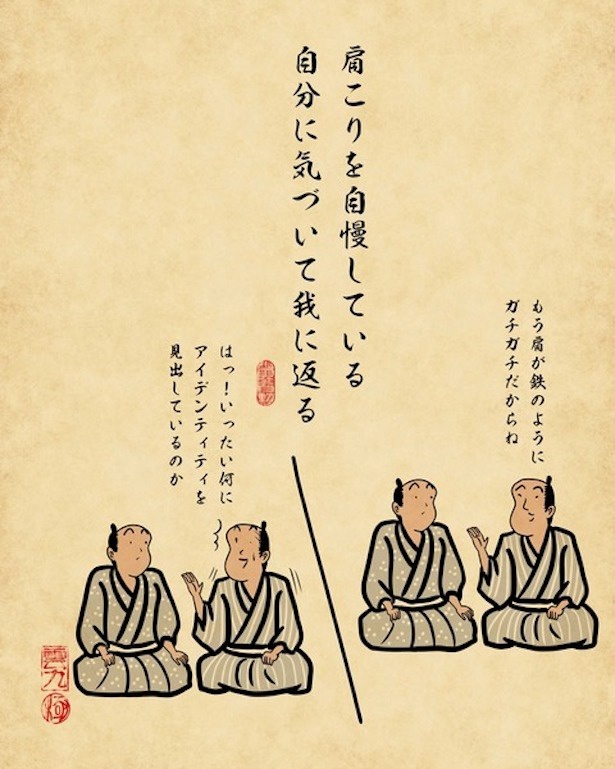 肩こりを自慢している
自分に気づいて我に返る
もう肩が鉄のように
ガチガチだからね
はっ！いったい何に
アイデンティティを
見出しているのか